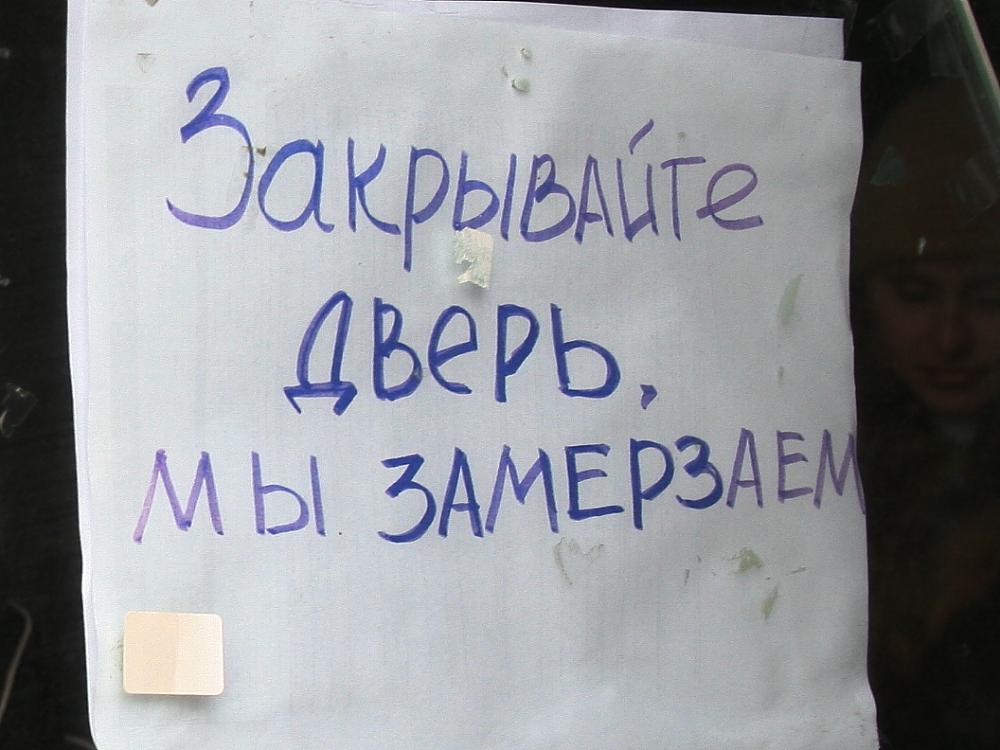 Закрывайте
дверь,
мы ЗАМЕРЗАЕМ